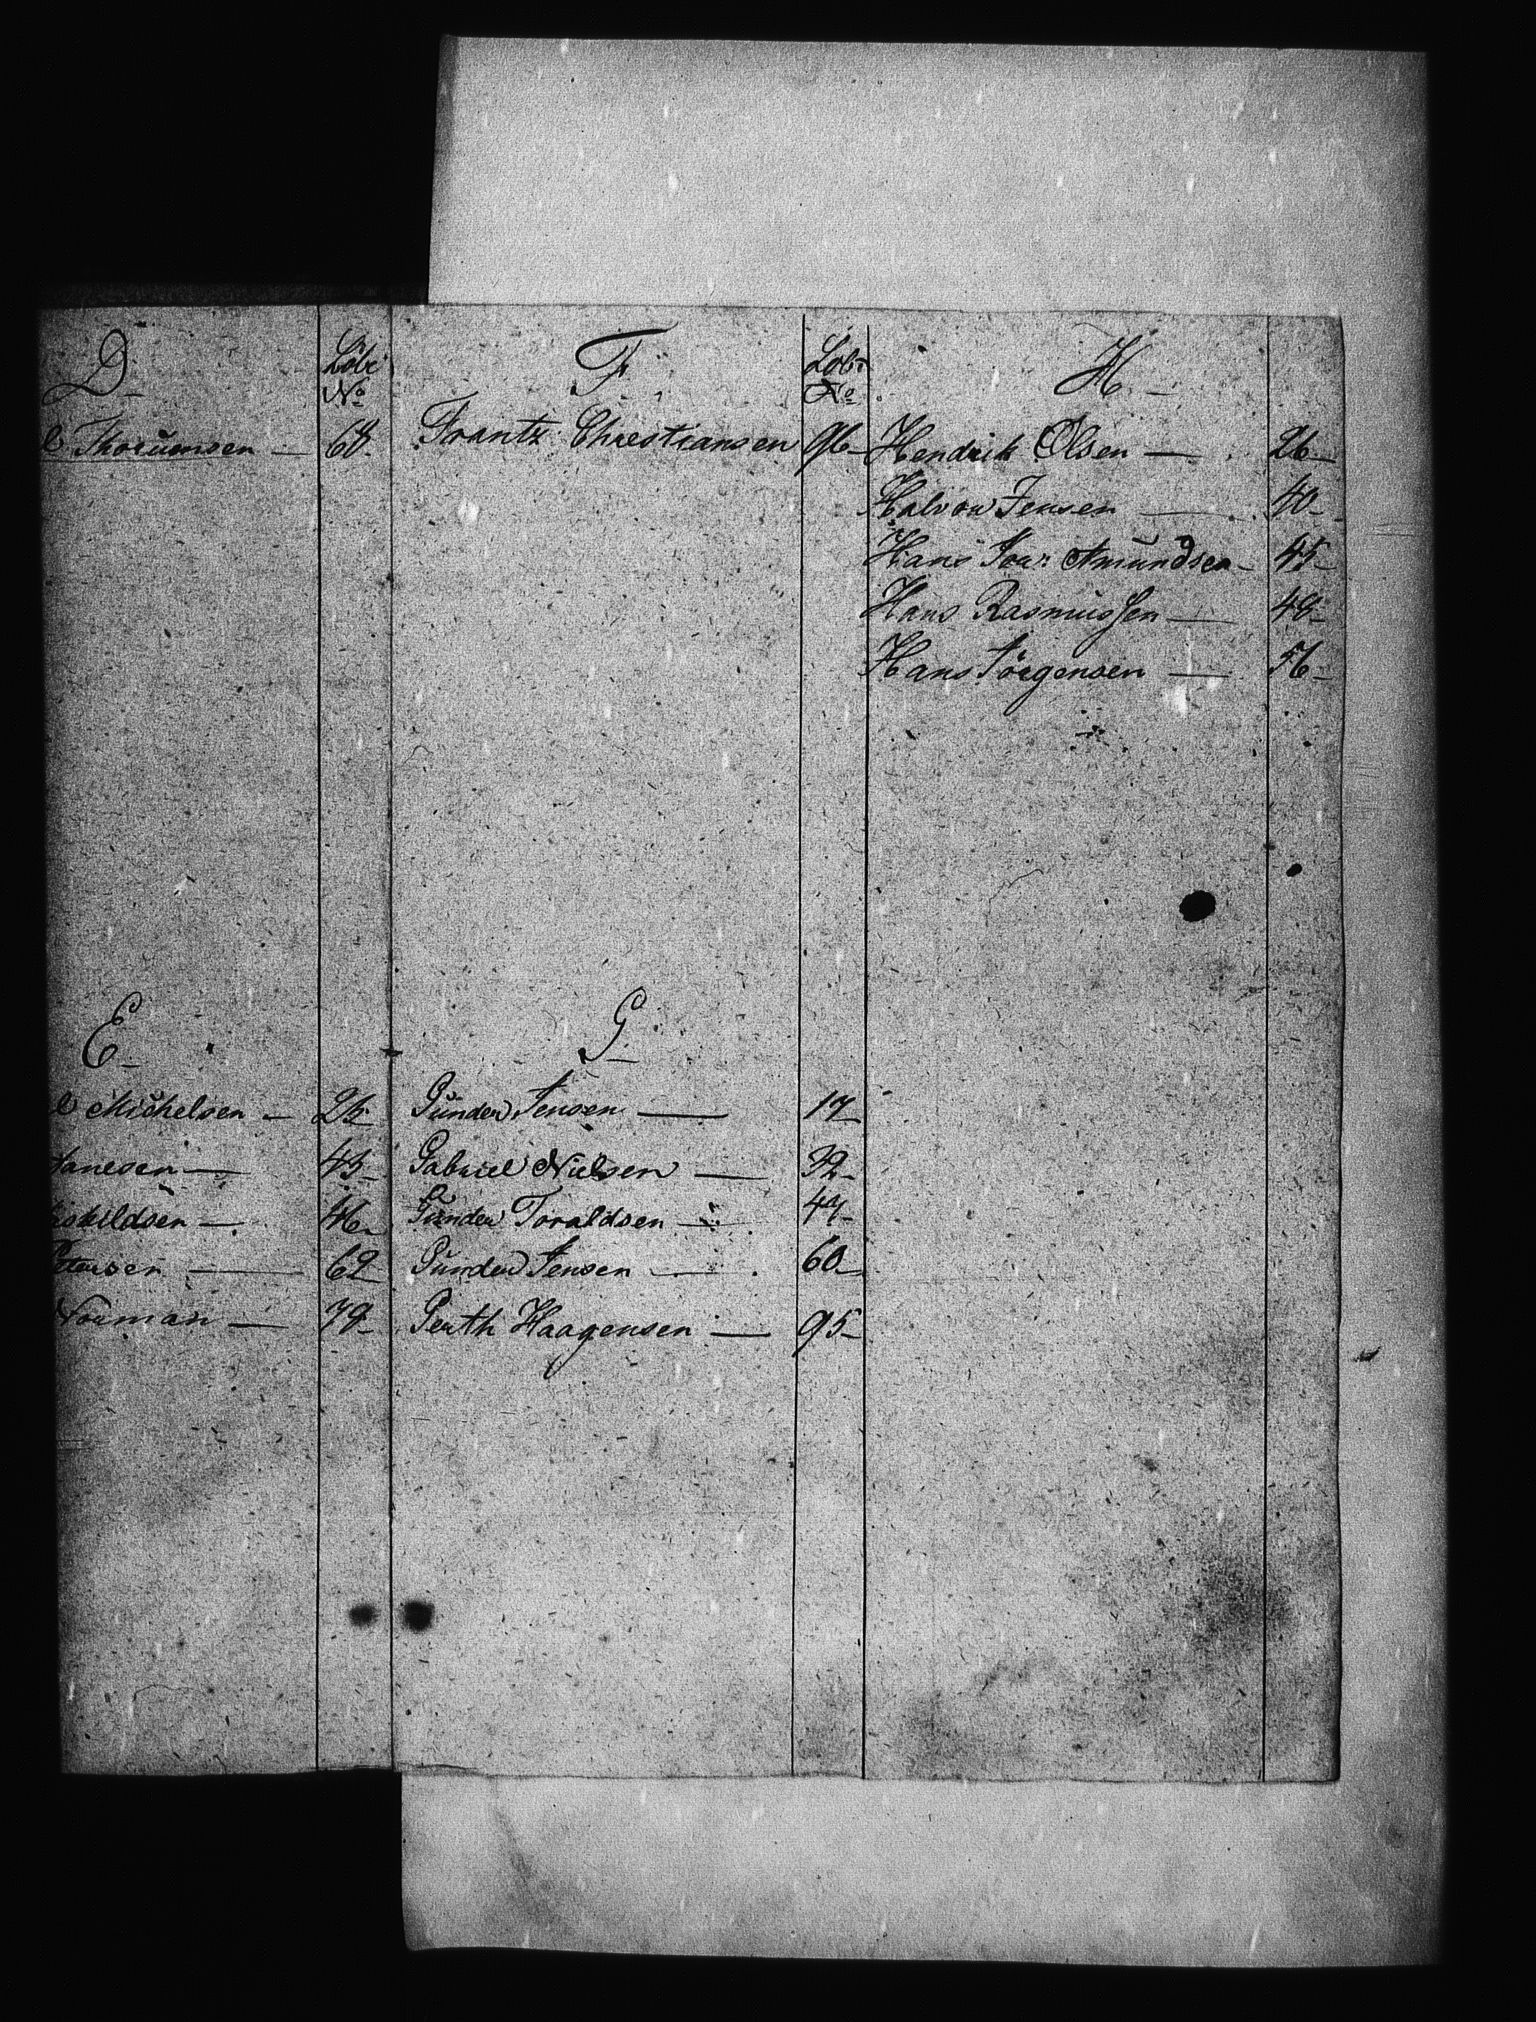 D
Löbe
No
Thorumsen — 68
E
Michelsen — 25
Janesen — 43
46
Petersen — 62
Norman — 79
F
Löbe
No
Frantz Christiansen 96
G
Gunder Jensen — 17
Gabriel Nielsen — 32
Gunder Toraldsen — 47
Gunder Jensen — 60
Gerth Haagensen — 95
H
Hendrik Olsen — 26
Halvor Jensen — 40
Hans Amundsen 45
Hans Rasmussen — 48
Hans Jörgensen — 56